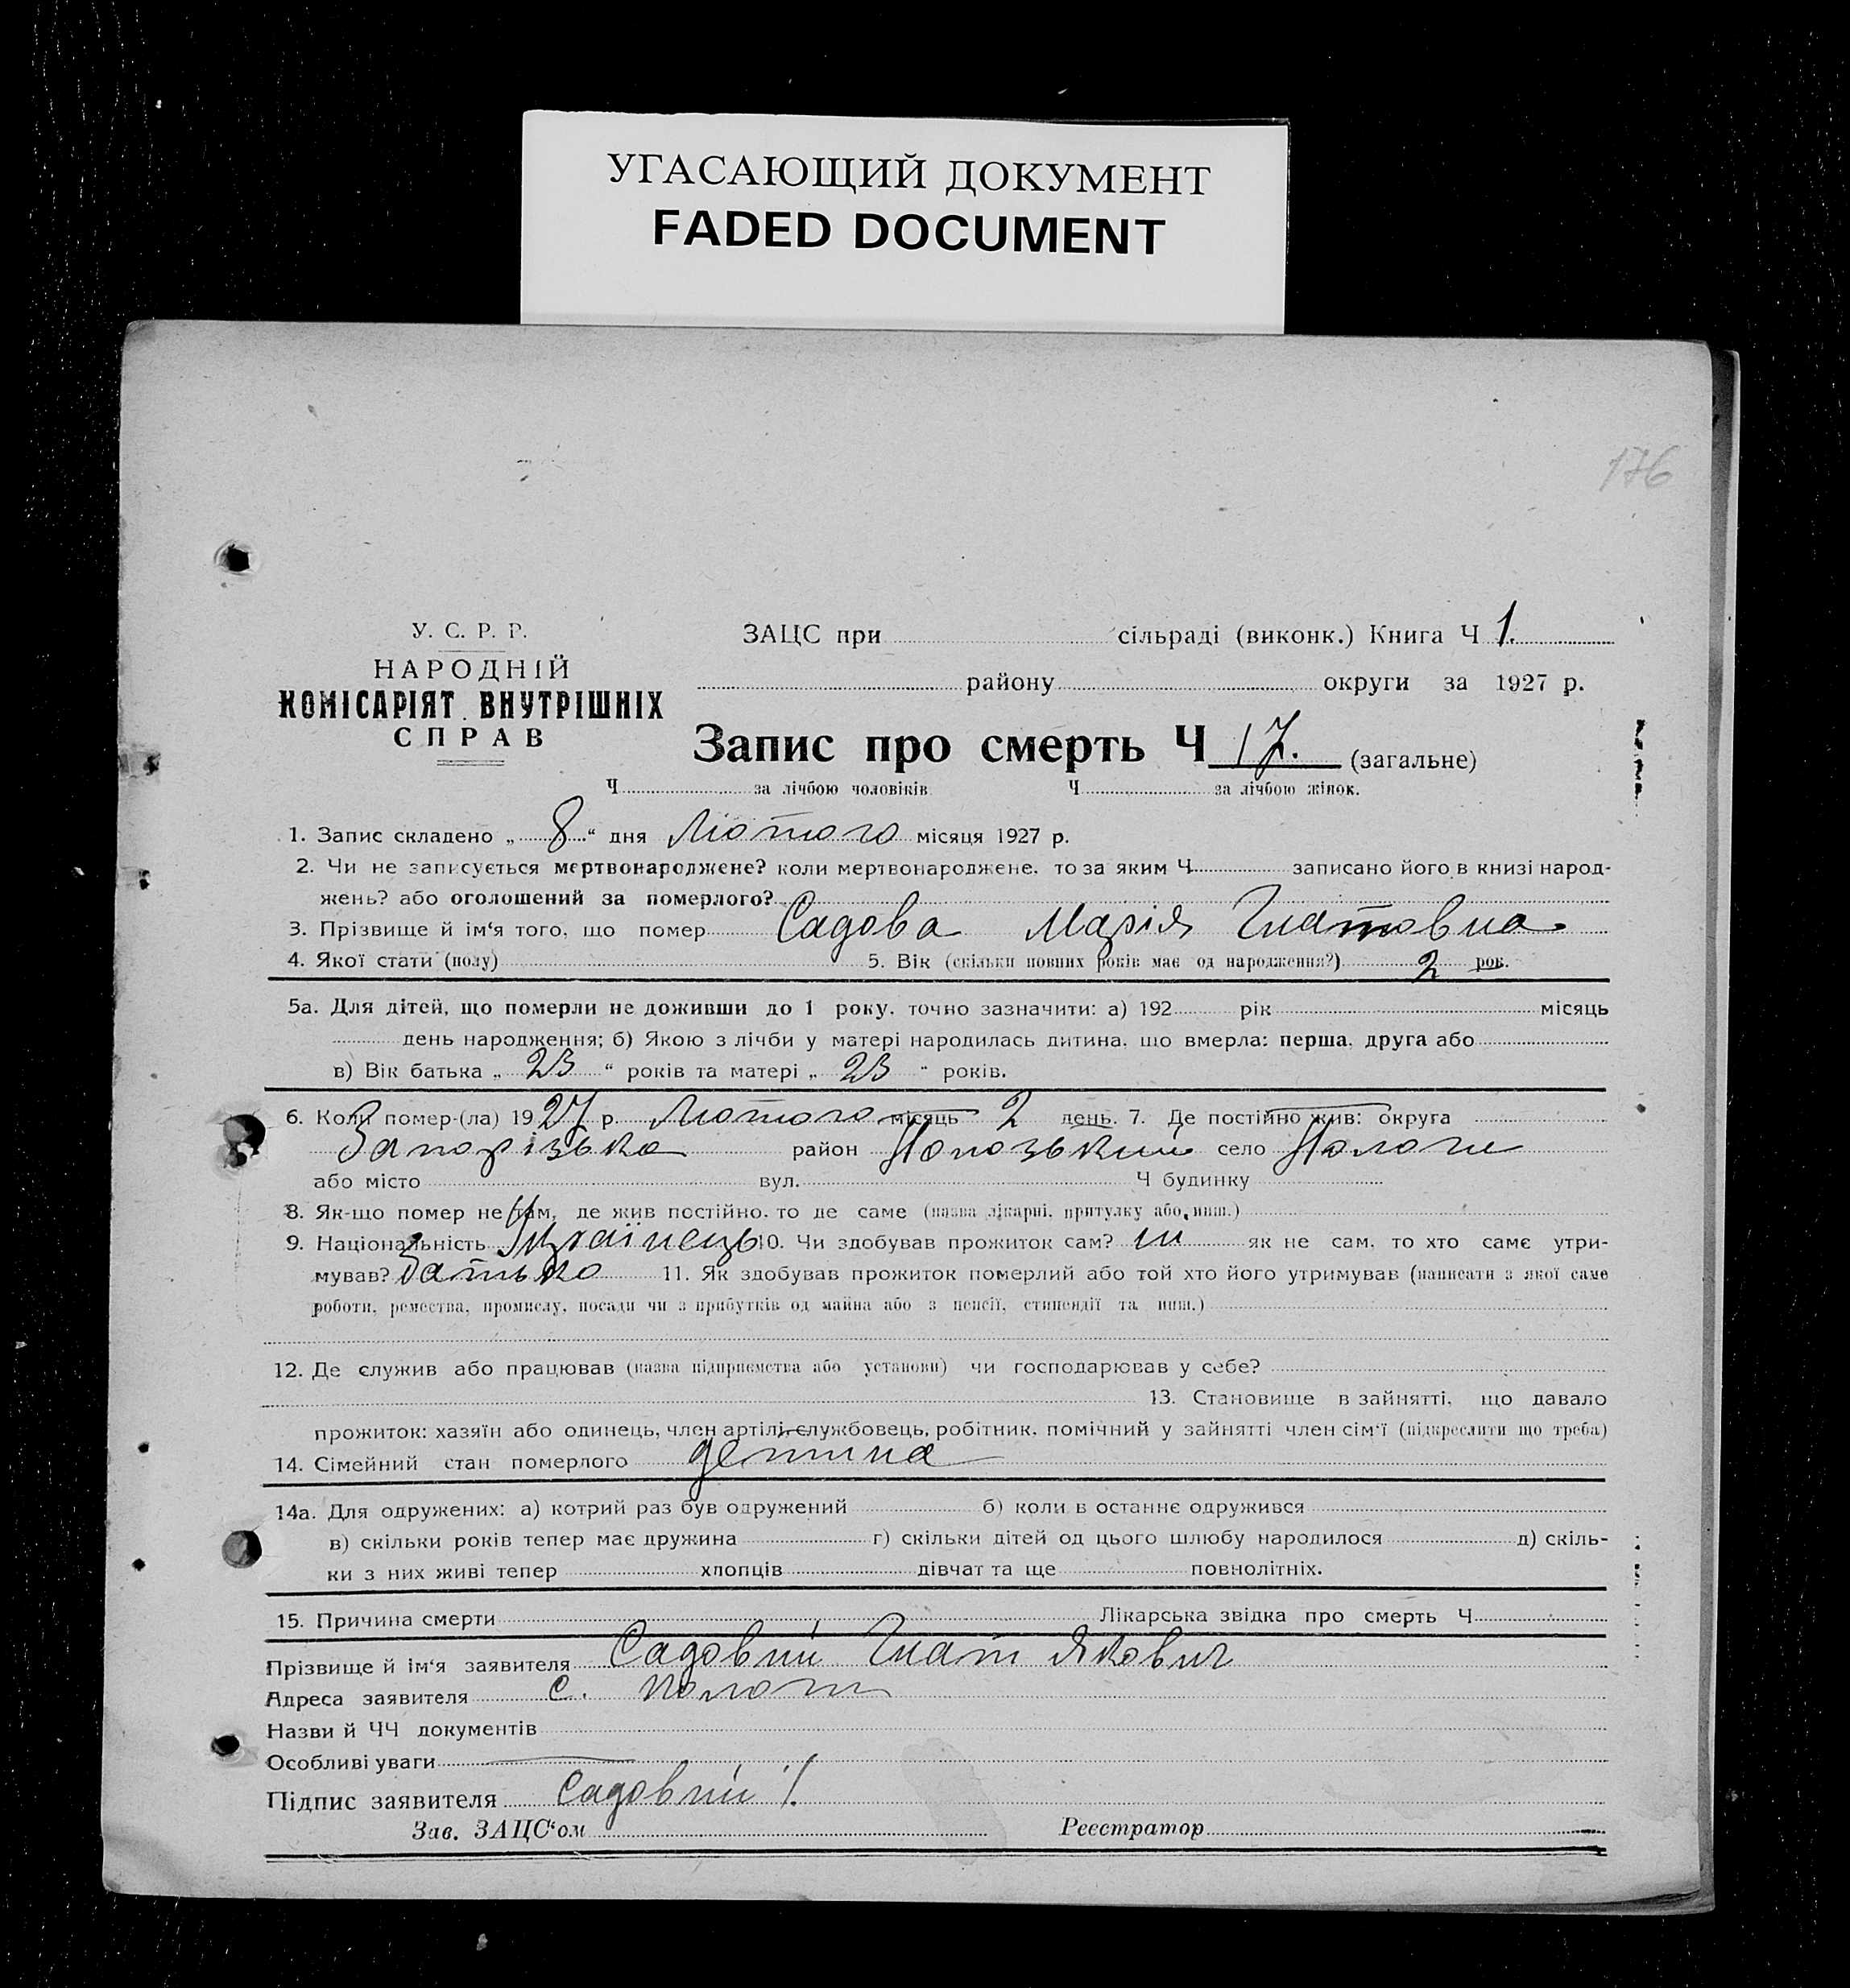 УГАСАЮЩИЙ ДОКУМЕНТ
FADED DOCUMENT
176
У. С. Р. Р.
НАРОДНІЙ
КОМІСАРІЯТ ВНУТРІШНІХ
СПРАВ
ЗАЦС при сільраді (виконк.) Книга Ч 1.
району округи за 1927 р.
Запис про смерть Ч 17. (загальне)
Ч за лічбою чоловіків Ч за лічбою жінок.
1. Запис складено „ 8 “ дня Лютого місяця 1927 р.
2. Чи не записується мертвонароджене? коли мертвонароджене, то за яким Ч записано його в книзі народ-
жень? або оголошений за померлого?
3. Прізвище й ім‘я того, що помер Садова Марія Гнатовна
4. Якої стати (полу) 5. Вік (скільки повних років має од народження?) 2 рок.
5а. Для дітей, що померли не доживши до 1 року, точно зазначити: а) 192 рік місяць
день народження; б) Якою з лічби у матері народилась дитина, що вмерла: перша, друга або
в) Вік батька „ 23 “ років та матері „ 23 “ років.
6. Коли помер-(ла) 1927 р. Лютого місяць 2 день. 7. Де постійно жив: округа
Запорізька район Пологівський село Пологи
або місто вул. Ч будинку
8. Як-що помер не там, де жив постійно, то де саме (назва лікарні, притулку або инш.)
9. Національність Українець 10. Чи здобував прожиток сам? ні як не сам, то хто саме утри-
мував? батько 11. Як здобував прожиток померлий або той хто його утримував (написати з якої саме
роботи, ремества, промислу, посади чи з прибутків од майна або з пенсії, стипендії та инш.)
12. Де служив або працював (назва підприємства або установи) чи господарював у себе?
13. Становище в зайнятті, що давало
прожиток: хазяїн або одинець, член артілі, службовець, робітник, помічний у зайнятті член сім‘ї (підкреслити що треба)
14. Сімейний стан померлого детина
14а. Для одружених: а) котрий раз був одружений б) коли в останнє одружився
в) скільки років тепер має дружина г) скільки дітей од цього шлюбу народилося д) скіль-
ки з них живі тепер хлопців дівчат та ще повнолітніх.
15. Причина смерти Лікарська звідка про смерть Ч
Прізвище й ім‘я заявителя Садовий Гнат Якович
Адреса заявителя с. Пологи
Назви й ЧЧ документів
Особливі уваги
Підпис заявителя Садовий
Зав. ЗАЦС‘ом Реєстратор